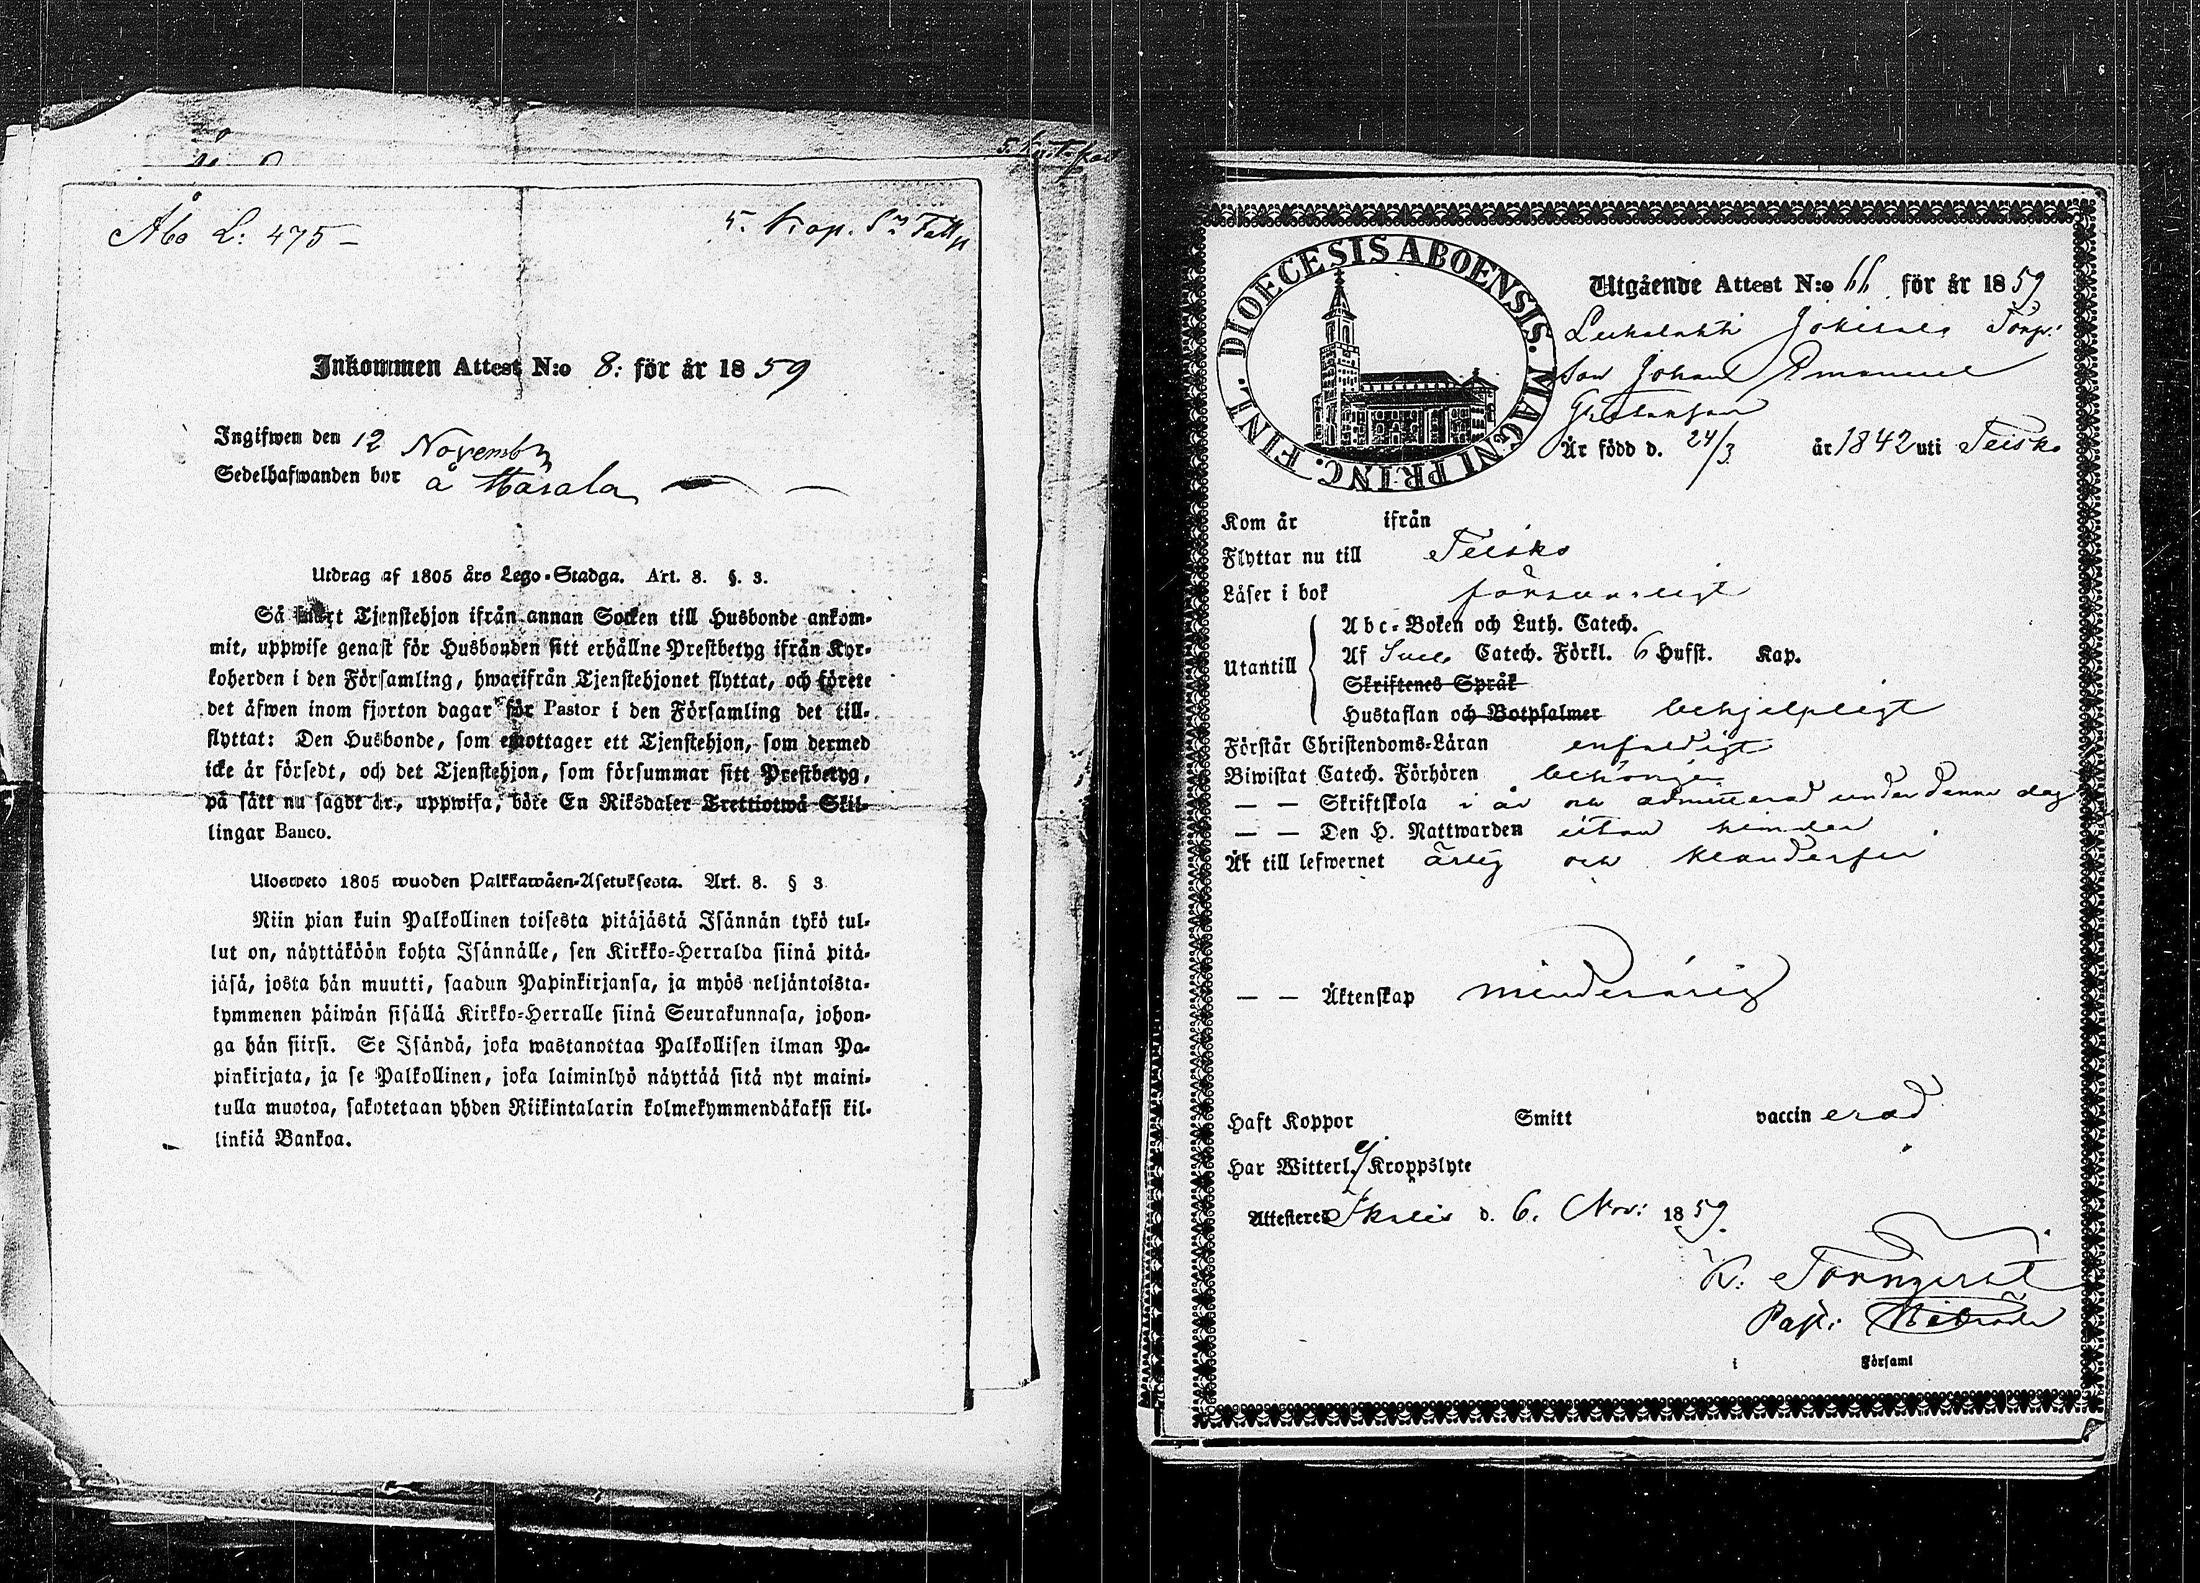 Åbo L: 475 –
5. Kop. Sr
Inkommen Attest N:o 8: för år 1859
Ingifwen den 12 Novembr
Sedelhafwanden bor å
Utdrag af 1805 års Lego-Stadga. Art. 8. §. 3.
Så snart Tjenstehjon ifrån annan Socken till Husbonde ankom-
mit, uppwise genast för Husbonden sitt erhållne Prestbetyg ifrån Kyr-
koherden i den Församling, hwarifrån Tjenstehjonet flyttat, och förete
det äfwen inom fjorton dagar för Pastor i den Församling det till-
flyttat: Den Husbonde, som emottager ett Tjenstehjon, som dermed
icke är försedt, och det Tjenstehjon, som försummar sitt Prestbetyg,
på sätt nu sagdt är, uppwisa, böte En Riksdaler Trettiotwå Skil-
lingar Banco.
Ulosweto 1805 wuoden Palkkawäen-Asetuksesta. Art. 8. § 3.
Niin pian kuin Palkollinen toisesta pitäjästä Isännän tykö tul-
lut on, näyttäköön kohta Isännälle, sen Kirkko-Herralda siinä pitä-
jäsä, josta hän muutti, saadun Papinkirjansa, ja myös neljäntoista-
kymmenen päiwän sisällä Kirkko-Herralle siinä Seurakunnasa, johon-
ga hän siirsi. Se Isändä, joka wastanottaa Palkollisen ilman Pa-
pinkirjata, ja se Palkollinen, joka laiminlyö näyttää sitä nyt maini-
tulla muotoa, sakotetaan yhden Riikintalarin kolmekymmendäkaksi kil-
linkiä Bankoa.
DIOECESIS ABOENSIS. MAGNI PRINC. FINL.
Utgående Attest N:o 66 för år 1859
Torp:
son Johan Emanuel
Är född d. 24/3 år 1842 uti Teisko
Kom år ifrån
Flyttar nu till Teisko
Läser i bok försvarligt
Utantill
Abc-Boken och Luth. Catech.
Af Sveb. Catech. Förkl. 6 Hufst. Kap.
Skriftenes Språk
Hustaflan och Botpsalmer behjelpligt
Förstår Christendoms-Läran enfaldigt
Biwistat Catech. Förhören behörigen
– – Skriftskola i år och admitterad under denna dag
– – Den H. Nattwarden utan hinder
Är till lefwernet ärlig och klanderfri
– – Äktenskap minderårig
Haft Koppor Smitt vaccinerad
Har Witterl. ej Kroppslyte
Attesteres Ikalis d. 6. Nov: 1859.
K. Törnqvist
Past:
i Församl